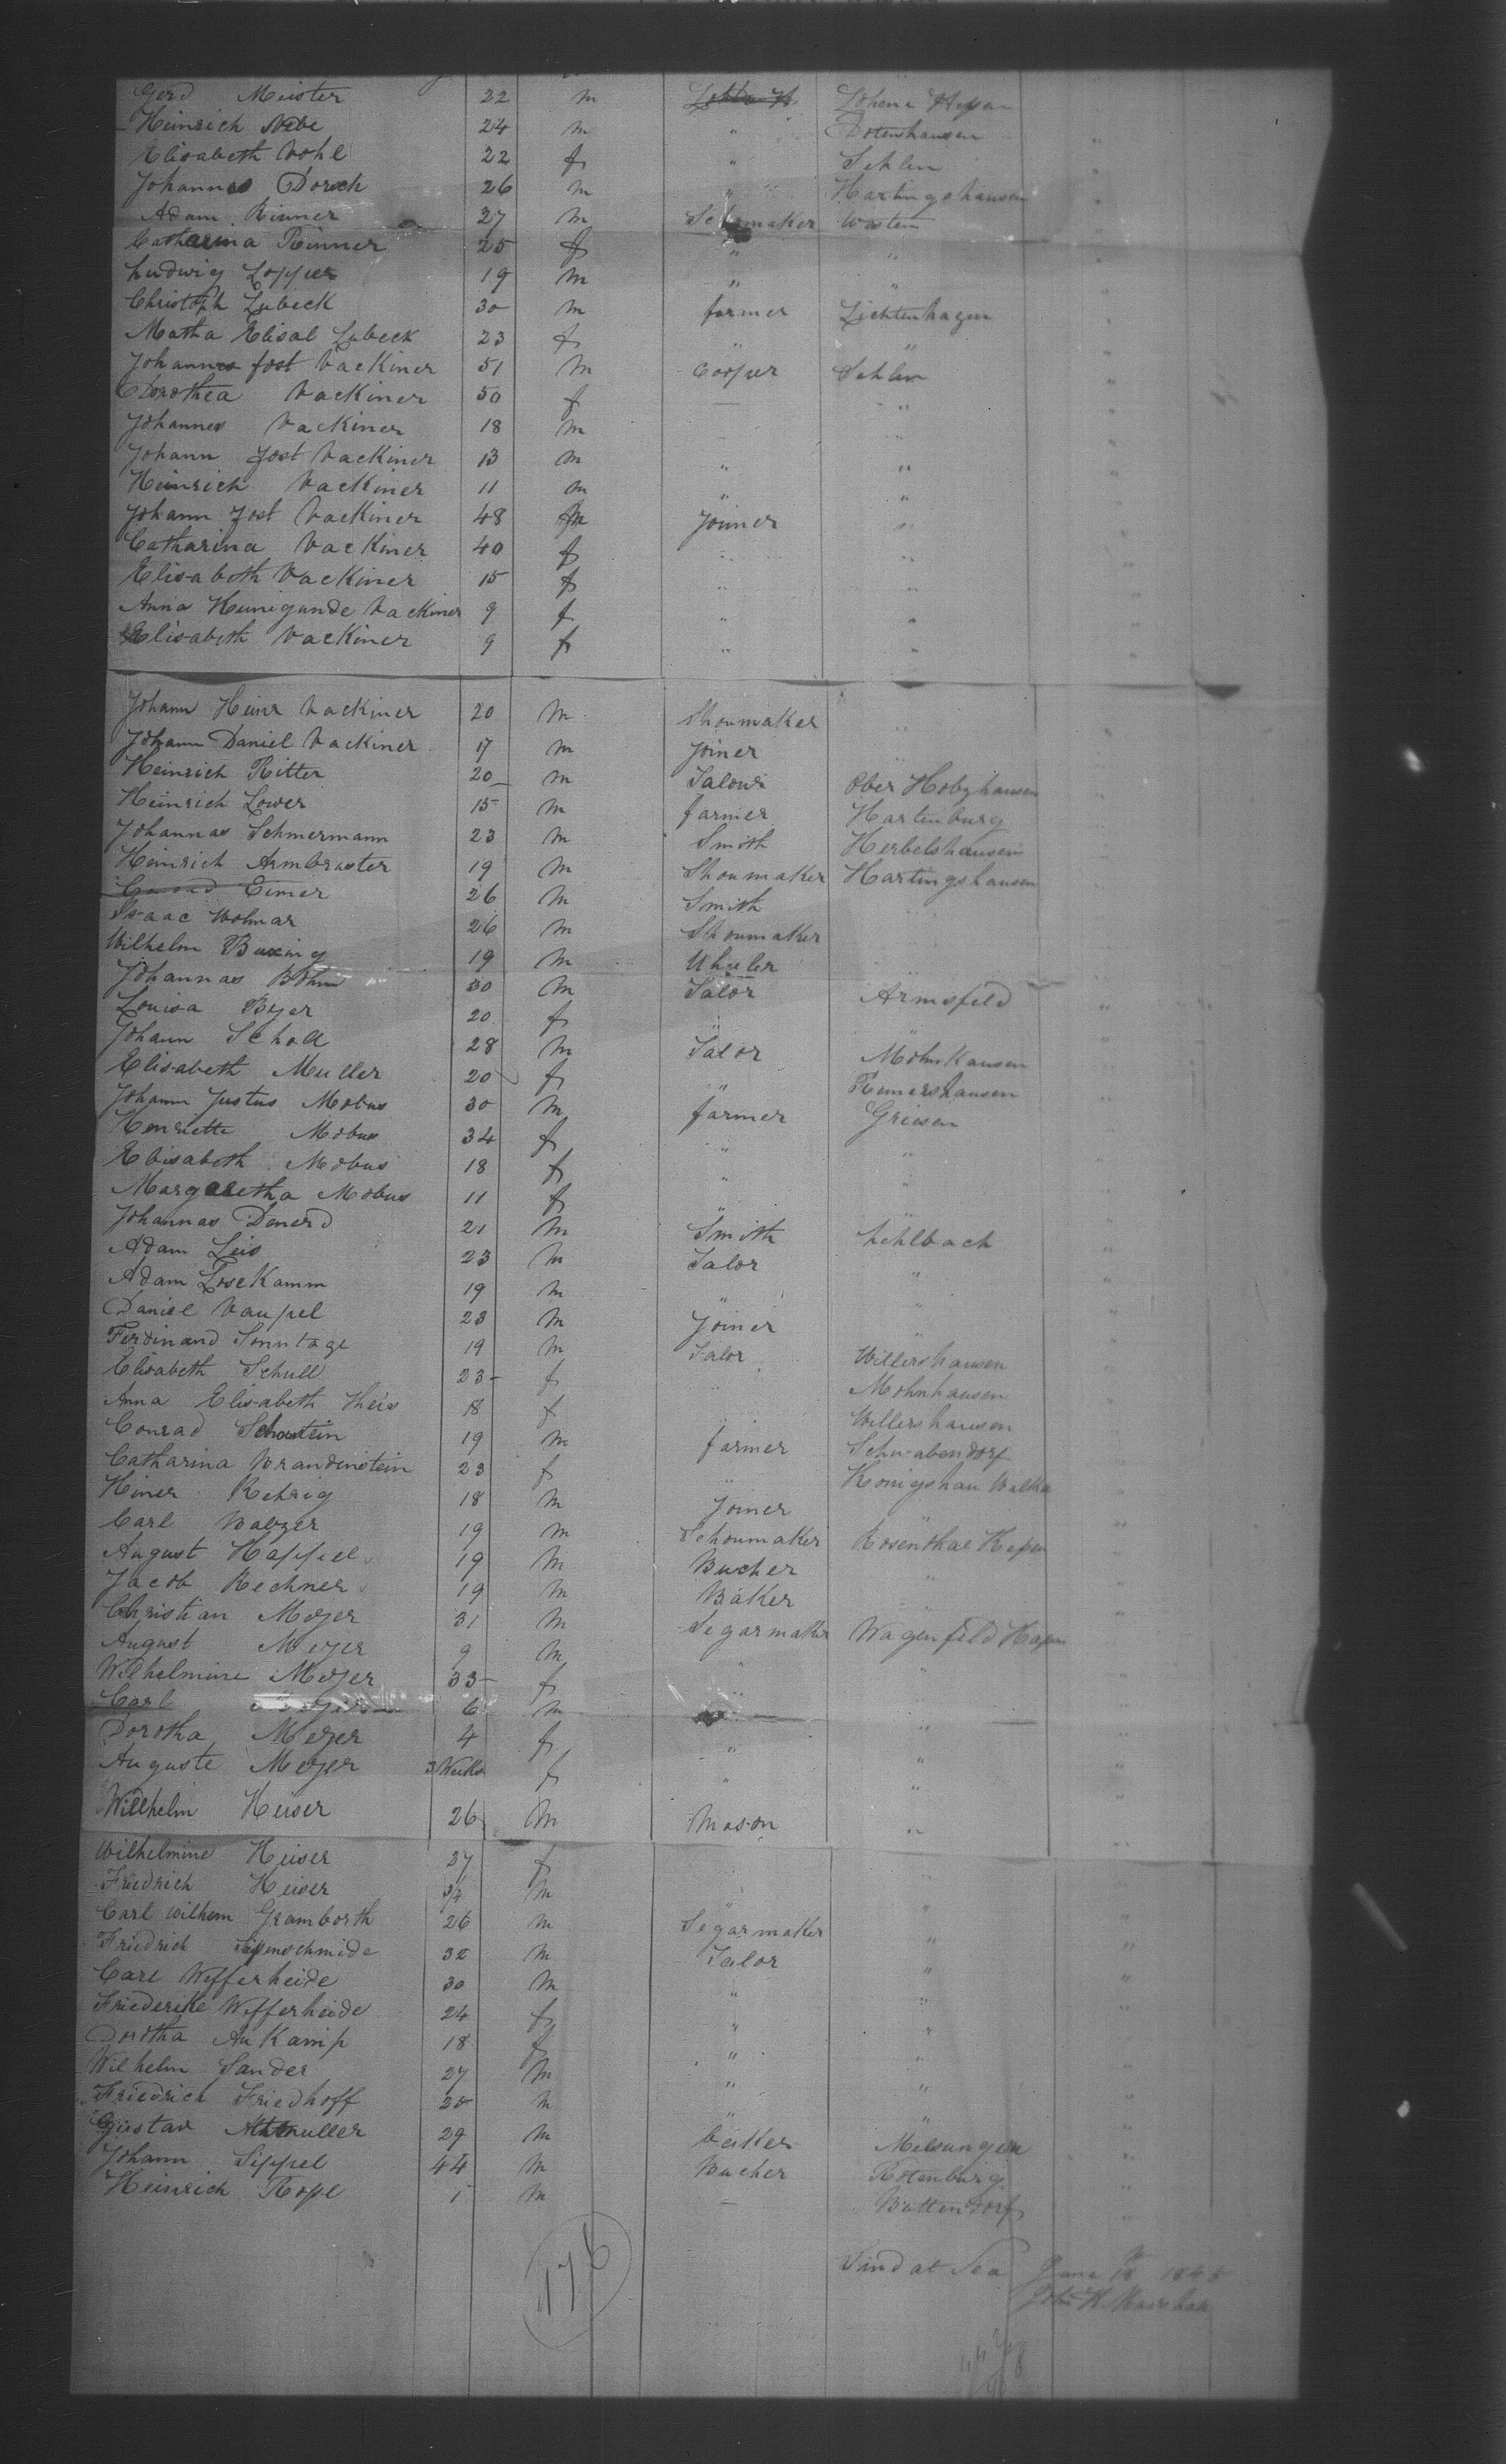 Gerd Meister 22 m Lohene Hessen
Heinrich Nebe 24 m " Dotenhausen "
Elisabeth Vohl 22 f " Sehlen "
Johannes Dorsch 26 m " Hartingshausen "
Adam Rinner 27 m Wosten "
Catharina Rinner 25 f " " "
Ludwig Lopper 19 m " " "
Christoph Lubeck 30 m farmer Lichtenhagen "
Matha Elisab Lubeck 23 f " " "
Johannes Jost Vackiner 51 m Cooper Sehlen "
Dorothea Vackiner 50 f — " "
Johannes Vackiner 18 m " "
Johann Jost Vackiner 13 m " " "
Heinrich Vackiner 11 m " " "
Johann Jost Vackiner 48 m Joiner " "
Catharina Vackiner 40 f " " "
Elisabeth Vackiner 15 f " " "
Anna Kunigunde Vackiner 9 f " " "
Elisabeth Vackiner 9 f " " "
Johann Heinr Vackiner 20 m Shoumaker "
Johann Daniel Vackiner 17 m Joiner "
Heinrich Ritter 20 m Ober Hobyhausen "
Heinrich Lower 15 m farmer Hartenburg "
Johannas Schmermann 23 m Smith Herbelshausen
Heinrich Armbruster 19 m Shoumaker Hartingshausen
Eimer 26 m Smith
Isaac Wolmar 26 m Shoumaker
Wilhelm Buxing 19 m Wheeler
Johannas Bohm 30 m Talor Armsfeld "
Louisa Byer 20 f " "
Johann Scholl 28 m Talor Mohnhausen "
Elisabeth Muller 20 f " Remershausen "
Johann Justus Mobus 30 m farmer Griesen "
Henriette Mobus 34 f " " "
Elisabeth Mobus 18 f " "
Margaretha Mobus 11 f " "
Johannas Denerd 21 m Smith Lehlbach "
Adam Leis 23 m Talor " "
Adam Losekamm 19 m " "
Daniel Vaupel 23 m Joiner "
Ferdinand Sonntage 19 m Talor Willershausen "
Elisabeth Schull 23 f " Mohnhausen
Anna Elisabeth Theis 18 f " Willershausen
Conrad Schostein 19 m farmer Schwabendorf
Catharina Brandenstein 23 f " Konigshau
Hiner Rehrig 18 m Joiner "
Carl Balzer 19 m Schoumaker Rosenthal Hessen "
August Happel 19 m Bucher " "
Jacob Rechner 19 m Baker " "
Christian Meyer 31 m Segarmaker Wagenfeld "
August Meyer 9 m " " "
Wilhelmine Meyer 33 f " "
Carl 6 m
Dorotha Meyer 4 f " " "
Auguste Meyer 3 Weeks f " " "
Willhelm Heiser 26 m Mason " "
Wilhelmine Heiser 27 f
Friedrich Heiser 3/4 m "
Carl Wilhem Gramborth 26 m Segarmaker " "
Friedrich 32 m Talor " "
Carl Wefferheide 30 m " " "
Friederike Wefferheide 24 f " " "
Dorotha Aukamp 18 f " " "
Wilhelm Sander 27 m " " "
Friedrich Friedhoff 25 m " " "
Gustav 29 m Baker Melsungen "
Johann Sippel 44 m Bucher Rotenburg "
Heinrich Rope 1 m — Battendorf "
176
at Sea June 18 1845
John H. Marshall